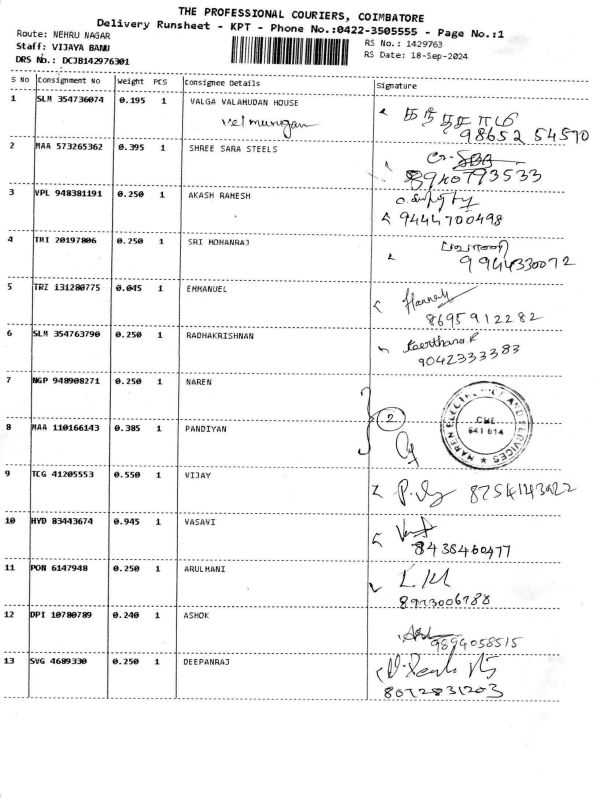 THE PROFESSIONAL COURIERS, COIMBATORE
Delivery Runsheet - KPT - Phone No.:0422-3505555 - Page No.:1
Route: NEHRU NAGAR
RS No.: 1429763
Staff: VIJAYA BANU
RS Date: 18-Sep-2024
DRS No.: DCJB142976301
S No Consignment No Weight PCS Consignee Details Signature
1 SLM 354736074 0.195 1 VALGA VALAMUDAN HOUSE
velmurugan
98652 54570
2 MAA 573265362 0.395 1 SHREE SARA STEELS
3 VPL 948381191 0.250 1 AKASH RAMESH
9444700498
4 TMI 20197806 0.250 1 SRI MOHANRAJ
9944330072
5 TRZ 131280775 0.045 1 EMMANUEL
8695912282
6 SLM 354763790 0.250 1 RADHAKRISHNAN
Keerthana.R
9042333383
7 NGP 948908271 0.250 1 NAREN
2
NAREN ELECTRICALS AND SERVICES
CBE
641 014
8 MAA 110166143 0.385 1 PANDIYAN
9 TCG 41205553 0.550 1 VIJAY
8754143922
10 HYD 83443674 0.945 1 VASAVI
8438460477
11 PON 6147948 0.250 1 ARULMANI
8973006788
12 DPI 10780789 0.240 1 ASHOK
9894058515
13 SVG 4689330 0.250 1 DEEPANRAJ
8072831203